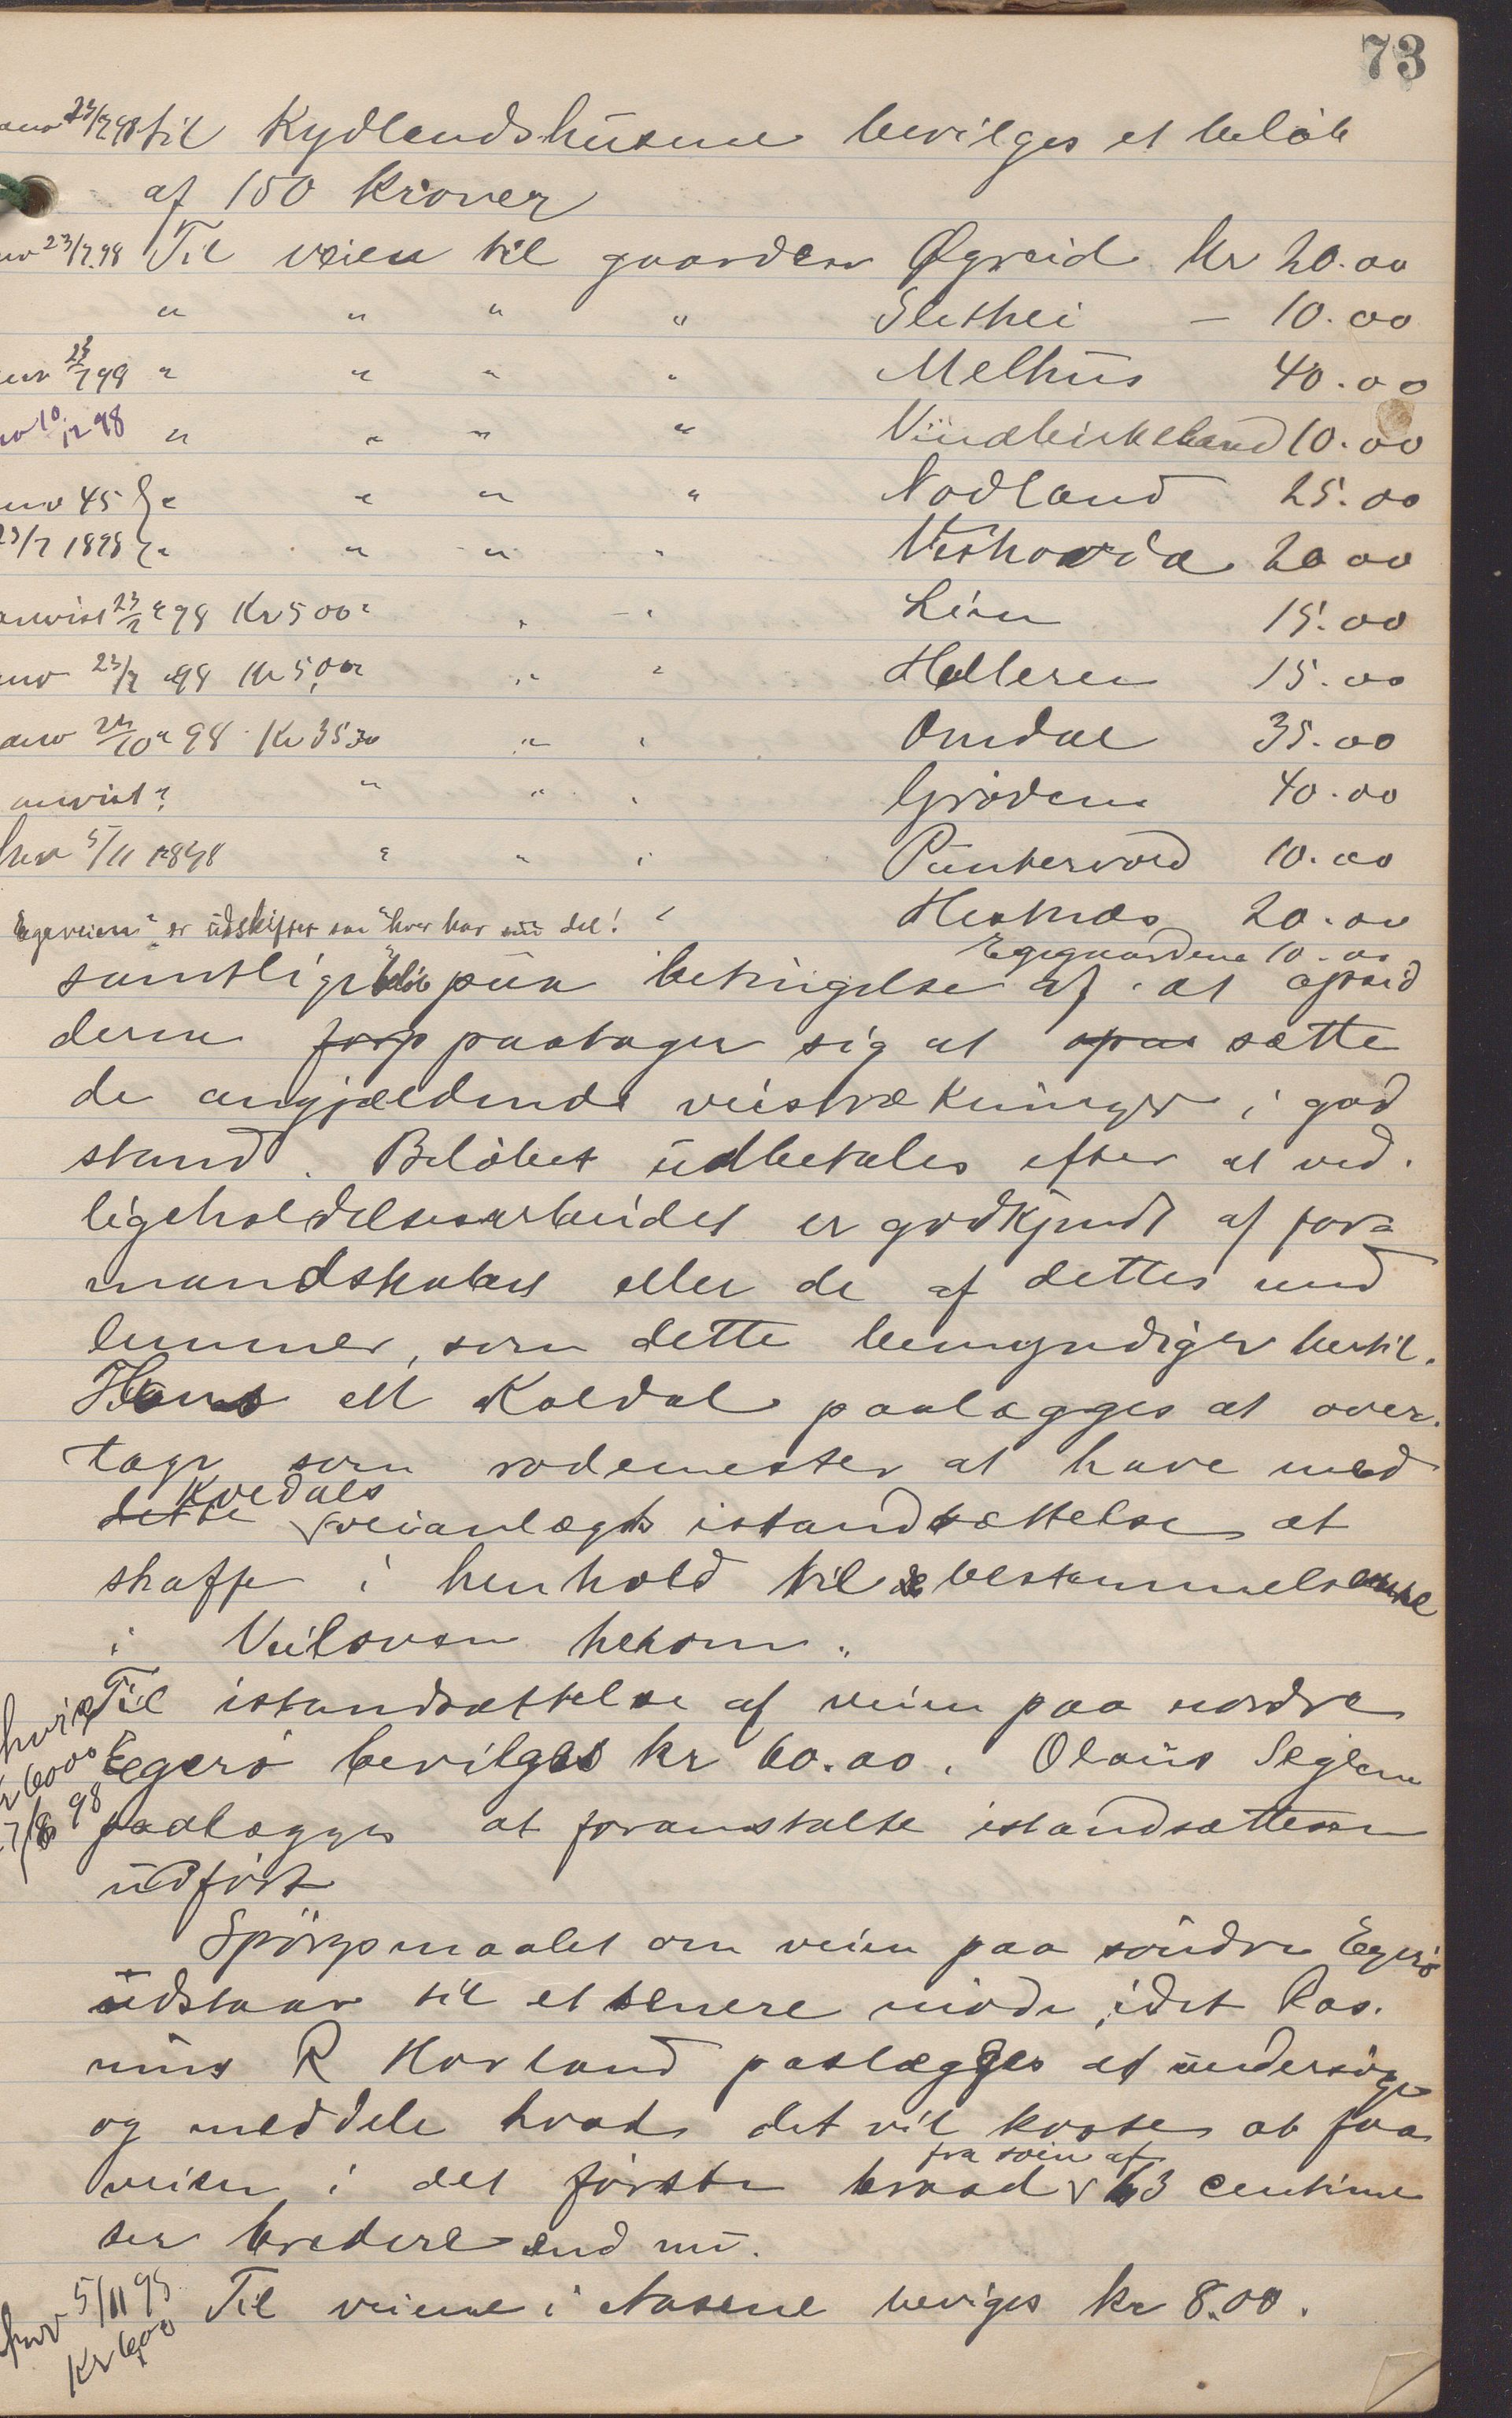 73
anv 23/7 98 til Kydlandshusene bevilges et beløb
af 150 Kroner
anv 23/7.98 Til veien til gaarden Øgreid Kr 20.00
" " " " Slethei - 10.00
anv 23/7 99 " " " " Melhus 40.00
anv 10/12 98 " " " " Vindbirkeland 10.00
anv 45 " " " " Nodland 25.00
23/7 1898 " " " " 20 00
anvist 23/7 98 Kr 5 00 " " " Lien 15.00
anv 23/7 98 Kr 5,00 " " Helleren 15.00
anv 24/10 98 Kr 35 30 " " Omdal 35.00
anvist? " " " Grødem 40.00
Anv 5/11 1898 " " " Puntervold 10.00
Egeveien" er udskiftet saa hver har sin del! " Hestnæs 20.00
Egegaardene 10.00
samtlige bidr paa betingelse af at opsid
derne forp paatager sig at sætte
de angjældende veistrækninger i god
stand. Beløbet udbetales efter at ved-
ligeholdelsesarbeidet er godkjendt af for-
mandskabet eller de af dettes med
lemmer, som dette bemyndiger hertil.
Hans M Koldal paalægges at over-
tage som rodemester at have med
dette Koldals veianlægs istandsættelse at
skaffe i henhold til bestemmelserne
i Veiloven herom.
Anvist Kr 6000 17/8 98
Til istandsættelse af veien paa nordre
Egerø bevilges kr 60.00. Olaus Seglem
paalægges at foranstalte istandsættesen
udført
Spörgsmaalet om veien paa søndre Egerø
udstaar til et senere møde, idet Ras-
mus R Hovland paalægges at undersøge
og meddele hvad det vil koste at faa
veien i det første brood fra søin af 63 centime
ter bredere end nu.
Anv 5/11 95 Kr 600
Til veiene i Aasene beviges kr 8.00.